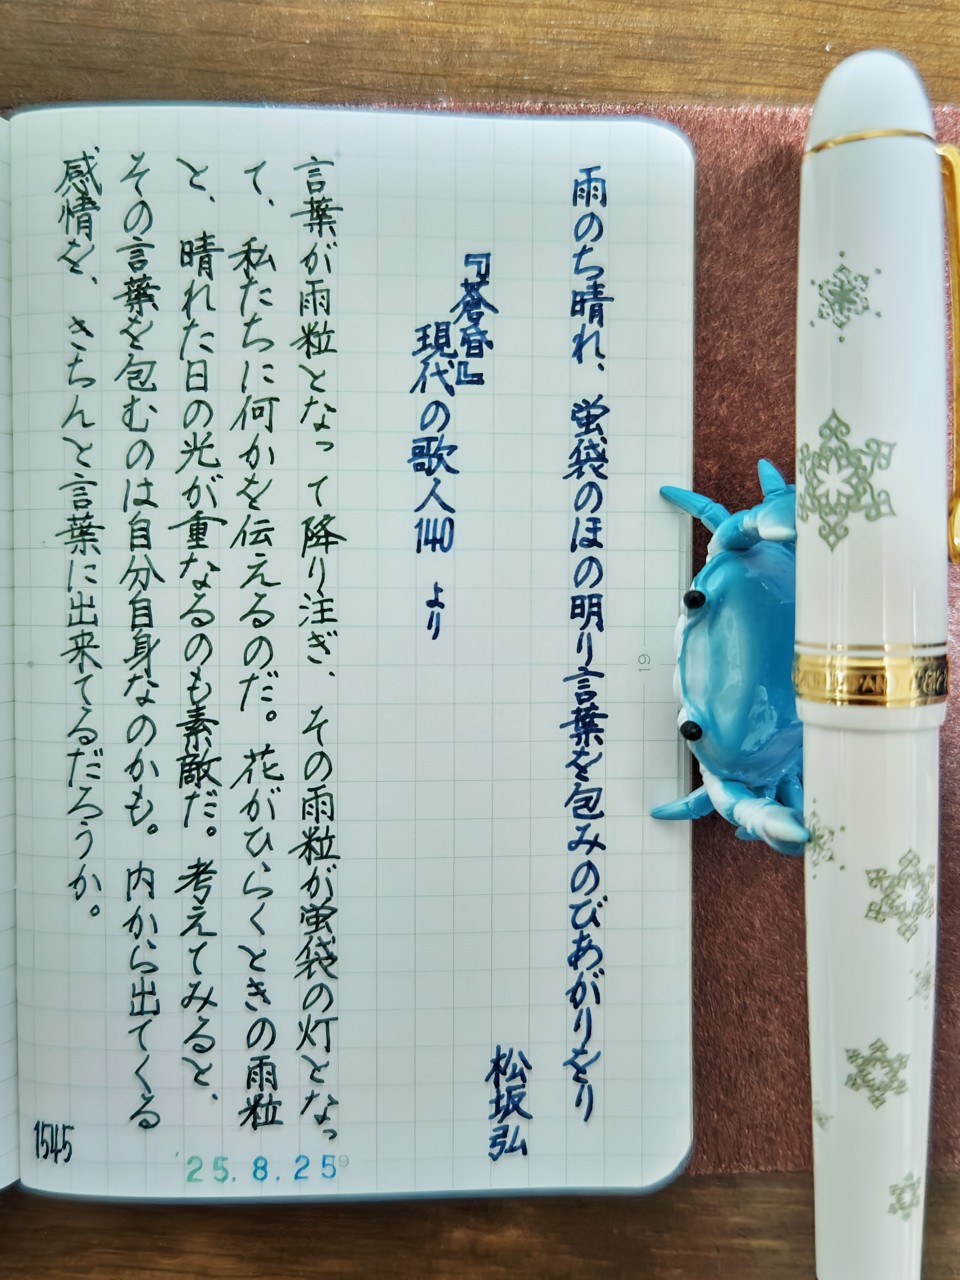 雨のち晴れ、蛍袋のほの明り言葉を包みのびあがりをり
松坂弘
『蒼昏』
現代の歌人140 より
言葉が雨粒となって降り注ぎ、その雨粒が蛍袋の灯となっ
て、私たちに何かを伝えるのだ。花がひらくときの雨粒
と、晴れた日の光が重なるのも素敵だ。考えてみると、
その言葉を包むのは自分自身なのかも。内から出てくる
感情を、きちんと言葉に出来てるだろうか。
1545
25.8.25
19